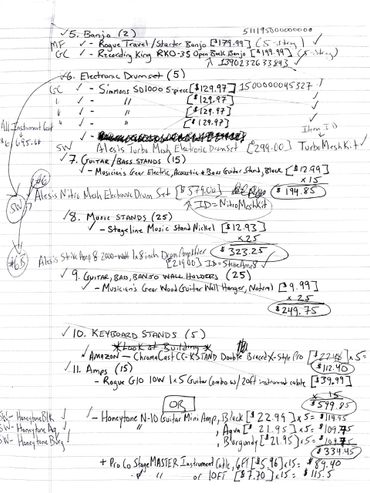 ✓5. Banjo (2) 511195000000000
MF ✓ - Rogue Travel/Starter Banjo [$179.99] (5-string) ✓
GC ✓ - Recording King RKO-3S Open Back Banjo [$199.99] (5-string)
↑ 1390232633893 ✓
✓6. Electronic Drumset (5)
GC ✓ - Simmons SD1000 5 piece [$129.97] 1500000045327 ✓
" ✓ - " [$129.97]
" ✓ - " [$129.97]
" ✓ - " [$129.97] Item ID
SW Alesis Turbo Mesh Electronic Drumset [299.00] TurboMeshKit ✓
All Instrument Cost
✓7. GUITAR/BASS STANDS (15)
✓ - Musician's Gear Electric, Acoustic & Bass Guitar Stand, Black [12.99]
x 15
$194.85
#6
SW
Alesis Nitro Mesh Electronic Drum Set [$379.00]
↑ ID=NitroMeshKit
✓8. MUSIC STANDS (25)
✓ - Stageline Music Stand Nickel [$12.93]
x 25
$323.25
#6.5
Alesis Strike Amp 8 2000-watt 1x8 inch Drum Amplifier
[219.00] ID=StrikeAmp8 ✓
✓9. GUITAR, BASS, BANJO WALL HOLDERS (25)
✓ - Musician's Gear Wood Guitar Wall Hanger, Natural [9.99]
x 25
$249.75
✓10. KEYBOARD STANDS (5)
*Look at Building*
✓ Amazon - ChromaCast CC-KSTAND Double Braced X-Style Pro [$22.48] x5=
$112.40
✓11. Amps (15)
- Rogue G10 10W 1x5 Guitar Combo w/ 20ft instrument cable [$39.99]
x 15
$599.85
OR
SW - HoneytoneBlk ✓ - Honeytone N-10 Guitar Mini Amp, Black [$22.99] x5= $114.95
SW - Honeytone Aq ✓ " , Aqua [$21.95] x5= 109.75
SW - Honeytone Burg ✓ " , Burgundy [$21.95] x5= 109.75
$334.45
+ Pro Co StageMASTER Instrument Cable, 6FT [$5.96] x15= $89.40
- " " or 10FT [$7.70] x15= $115.5